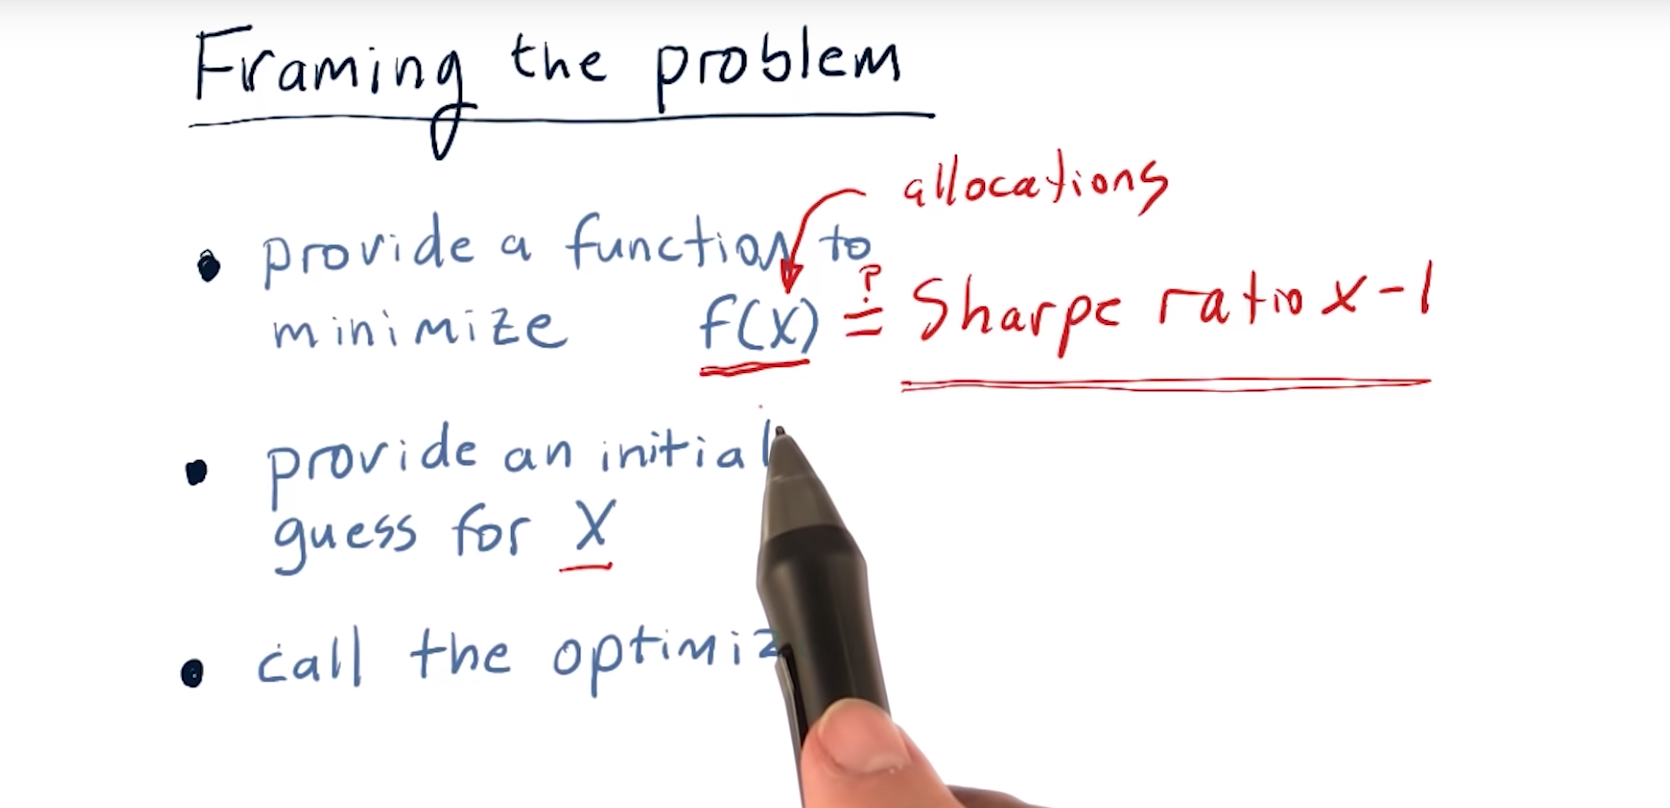 Framing the problem
allocations
• provide a function to
minimize f(X) ?= Sharpe ratio x -1
• provide an initial
guess for X
• call the optimiz